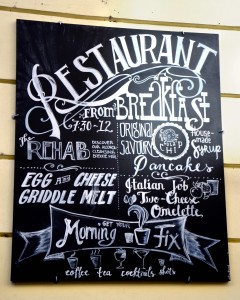 RESTAURANT
FROM BREAKFAST
7.30-12
The REHAB
DISCOVER
OUR ALCOHOL
ORIGINAL SAVOURY
HOUSE-MADE Syrup
Pancakes
EGG AND CHEESE
GRIDDLE MELT
Italian Job
Two-Cheese
Omelette
GET YOUR
Morning Fix
coffee tea cocktails shots